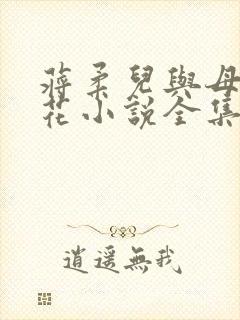 蔣柔兒與母
花小說全集
逍遥無我